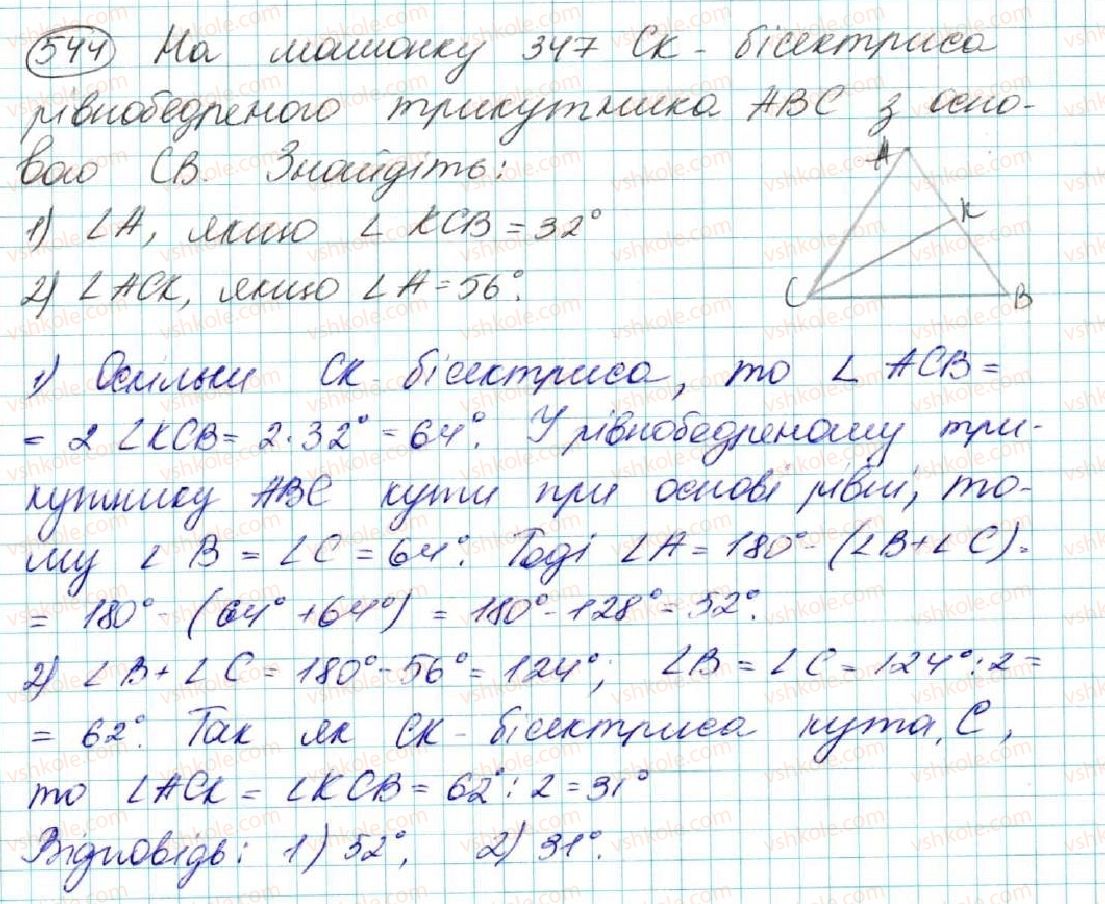 544 На малюнку 347 СК - бісектриса
рівнобедреного трикутника АВС з осно-
вою СВ. Знайдіть:
1) ∠А, якщо ∠ КСВ = 32°
2) ∠АСК, якщо ∠А = 56°.
А
К
С
В
1) Оскільки СК - бісектриса, то ∠ АСВ =
= 2 ∠КСВ = 2·32° = 64°. У рівнобедреному три-
кутнику АВС кути при основі рівні, то-
му ∠ В = ∠С = 64°. Тоді ∠А = 180° - (∠В+∠С) =
= 180° - (64° + 64°) = 180° - 128° = 52°.
2) ∠В + ∠С = 180° - 56° = 124°; ∠В = ∠С = 124° : 2 =
= 62°. Так як СК - бісектриса кута С,
то ∠АСК = ∠КСВ = 62° : 2 = 31°
Відповідь: 1) 52°, 2) 31°.
vshkole.com